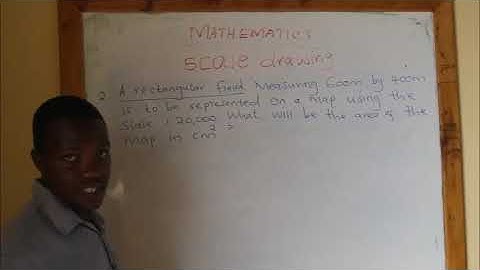 MATHEMATICS
scale drawing
2. A rectangular field measuring 600m by 400m
is to be represented on a map using the
scale 1:20,000 What will be the area of the
map in cm² ?